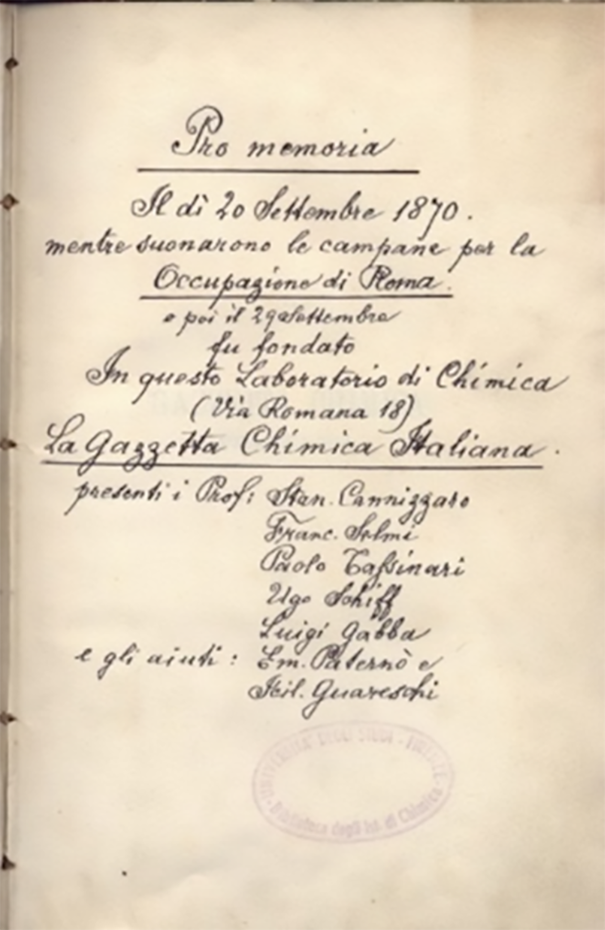 Pro memoria
Il dì 20 Settembre 1870.
mentre suonarono le campane per la
Occupazione di Roma.
e poi il 29 Settembre
fu fondato
In questo Laboratorio di Chimica
(Via Romana 18)
La Gazzetta Chimica Italiana.
presenti i Prof: Stan. Cannizzaro
Franc. Selmi
Paolo Tassinari
Ugo Schiff
Luigi Gabba
e gli aiuti: Em. Paternò e
Icil. Guareschi
UNIVERSITÀ DEGLI STUDI - FIRENZE
Biblioteca degli Ist. di Chimica